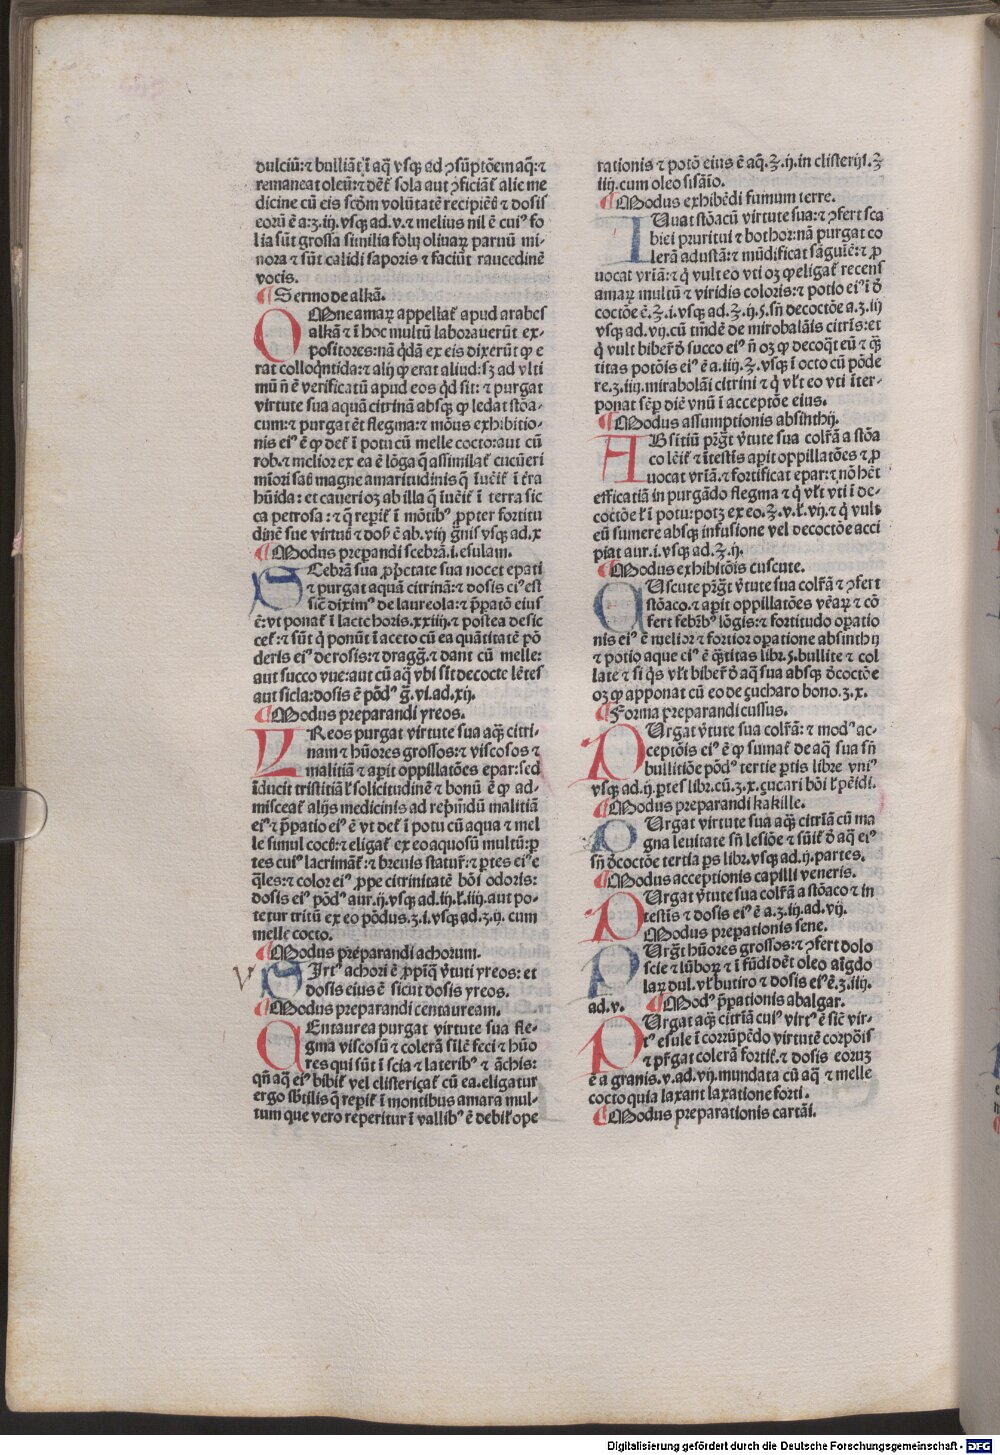 dulciū: ⁊ bulliāt ī aq̄ vsq̨ ad ꝯsūptōem aq̄: ⁊
remaneat oleū: ⁊ det̄ sola aut ꝯficiāt̄ alie me
dicine cū eis scđm volūtatē recipiēt̄ ⁊ dosis
eorū ē a.ʒ.iij. vsq̨ ad .v. ⁊ melius nil ē cuiꝰ fo
lia sūt grossa similia folij oliuaꝝ paruū mi-
nora ⁊ sūt calidi saporis ⁊ faciūt raucedinē
vocis.
¶ Sermo de alkā.
OMne amaꝝ appellat̄ apud arabes
alkā ⁊ ī hoc multū laborauerūt ex-
positores: nā q̄dā ex eis dixerūt ꝙ e
rat colloq̄ntida: ⁊ alij ꝙ erat aliud: sʒ ad vlti
mū n̄ ē verificatū apud eos qđ sit: ⁊ purgat
virtute sua aquā citrinā absq̨ ꝙ ledat stōa-
cum: ⁊ purgat ēt flegma: ⁊ mōus exhibitio-
nis eiꝰ ē ꝙ det̄ ī potu cū melle cocto: aut cū
rob. ⁊ melior ex ea ē lōga q̄ assimilat̄ cucūeri
mīori sab̄ magne amaritudinis q̄ īueīt̄ ī t̄ra
hūida: et caueri oʒ ab illa q̄ īueīt̄ ī terra sic
ca petrosa: ⁊ q̄ reperit̄ ī mōtibꝰ ꝓpter fortitu
dinē sue virtut̄ ⁊ dos̄ ē ab .viij ḡnis vsq̨ ad .x
¶ Modus preparandi scebrā .i. esulam.
SCebrā sua ꝓp̄etate sua nocet epati
⁊ purgat aquā citrinā: ⁊ dosis eiꝰ est
sic̄ diximꝰ de laureola: ⁊ p̄patō eius
ē: vt ponat̄ ī lacte horis .xxiiij. ⁊ postea desic
cet̄: ⁊ sūt q̄ ponūt ī aceto cū ea quātitatē pō
deris eiꝰ de rosis: ⁊ dragg̃. ⁊ dant cū melle:
aut succo vue: aut cū aq̄ vbi sit decocte lētes
aut sicla: dosis ē pōdꝰ g̃. vi. ad .xij.
¶ Modus preparandi yreos.
YReos purgat virtute sua aq̄ citri-
nam ⁊ hūores grossos: ⁊ viscosos ⁊
malitiā ⁊ apit oppillatōes epar: sed
īducit tristitiā ł solicitudinē ⁊ bonū ē ꝙ ad-
misceat̄ alijs medicinis ad rep̄mēdū malitiā
eiꝰ ⁊ p̄patio eiꝰ ē vt det̄ ī potu cū aqua ⁊ mel
le simul coct̄: ⁊ eligat̄ ex eo aquosū multū: ꝑ
tes cuiꝰ lacrimāt̄: ⁊ breuis statur̄: ⁊ ꝑtes eiꝰ e
q̄les: ⁊ color eiꝰ ꝓpe citrinitatē bōi odoris:
dosis eiꝰ pōdꝰ aur .ij. vsq̨ ad .iij. ł .iiij. aut po-
tetur tritū ex eo pōdus .ʒ.i. vsq̨ ad .ʒ.ij. cum
melle cocto.
¶ Modus preparandi achorum.
V SIrtꝰ achori ē ꝓpīq̄ v̄tuti yreos: et
dosis eius ē sicut dosis yreos.
¶ Modus preparandi centauream.
CEntaurea purgat virtute sua fle-
gma viscosū ⁊ colerā silē feci ⁊ hūo
res qui sūt ī scia ⁊ lateribꝰ ⁊ āchis:
qn̄ aq̄ eiꝰ bibit̄ vel clistericat̄ cū ea. eligatur
ergo sbtilis q̄ reperit̄ ī montibus amara mul-
tum que vero reperitur ī vallibꝰ ē debił ope
rationis ⁊ potō eius ē aq̄.℥.ij. in clisterijs.℥
iiij. cum oleo sisāio.
¶ Modus exhibēdi fumum terre.
IUuat stōacū virtute sua: ⁊ ꝯfert sca
biei pruritui ⁊ bothor: nā purgat co
lerā adustā: ⁊ mūdificat sāguiē: ⁊ ꝓ
uocat vriā: ⁊ q̄ vult eo vti oʒ ꝙ eligat̄ recens
amaꝝ multū ⁊ viridis coloris: ⁊ potio eiꝰ ī đ
coctōe ē.℥.i. vsq̨ ad.℥.ij.ꝫ. sn̄ decoctōe a.ʒ.iij
vsq̨ ad .vij. cū tm̄dē de mirobalāis citrīs: et
q̄ vult biber̄ đ succo eiꝰ n̄ oʒ ꝙ decoq̄t eū ⁊ q̄
titas potōis eiꝰ ē a .iiij.℥. vsq̨ ī octo cū pōde
re.ʒ.iij. mirabolāi citrini ⁊ q̄ vłt eo vti īter-
ponat sēꝑ diē vnū ī acceptōe eius.
¶ Modus assumptionis absinthij.
ABsitiū pr̄gt v̄tute sua colr̄ā a stōa
co lēit̄ ⁊ ītestīs apit oppillatōes ⁊ ꝓ
uocat vriā. ⁊ fortificat epar: ⁊ nō hēt
efficatiā in purgādo flegma ⁊ q̄ vłt vti ī de-
coctōe ł ī potu: potʒ ex eo.℥.v. ł .vij. ⁊ q̄ vult
eū sumere absq̨ infusione vel decoctōe acci
piat aur .i. vsq̨ ad.℥.ij.
¶ Modus exhibitōis cuscute.
CUscute pr̄gt v̄tute sua colr̄ā ⁊ ꝯfert
stōaco. ⁊ apit oppillatōes vēaꝝ ⁊ cō
fert febībꝰ lōgis: ⁊ fortitudo oꝑatio
nis eiꝰ ē melior ⁊ fortior oꝑatione absinthij
⁊ potio aque eiꝰ ē q̄titas libr.ꝫ. bullite ⁊ col
late ⁊ si q̄s vłt biber̄ đ aq̄ sua absq̨ đcoctōe
oʒ ꝙ apponat cū eo de çucharo bono .ʒ.x.
¶ Forma preparandi cussus.
PUrgat v̄tute sua colr̄ā: ⁊ modꝰ ac-
ceptōis eiꝰ ē ꝙ sumat̄ de aq̄ sua sn̄
bullitiōe pōdꝰ tertie ꝑtis libre vniꝰ
vsq̨ ad .ij. ꝑtes libr. cū .ʒ.x. çucari bōi ł pēidi.
¶ Modus preparandi kakille.
PUrgat virtute sua aq̄ citrīā cū ma
gna leuitate sn̄ lesiōe ⁊ sūit̄ đ aq̄ eiꝰ
sn̄ đcoctōe tertia ps libr. vsq̨ ad .ij. partes.
¶ Modus acceptionis capilli veneris.
PUrgat v̄tute sua colr̄ā a stōaco ⁊ in
testīs ⁊ dosis eiꝰ ē a .ʒ.iij. ad .vij.
Modus preparationis sene.
PUrg̃t hūores grossos: ⁊ ꝯfert dolo
scie ⁊ lūboꝝ ⁊ ī fūdi dēt oleo aīgdo
laꝝ dul. vł butiro ⁊ dosis eiꝰ ē .ʒ.iiij.
ad .v. ¶ Modꝰ p̄pationis abalgar.
PUrgat aq̄ citrīā cuiꝰ virtꝰ ē sic̄ vir-
tꝰ esule ī corrūpēdo virtutē corpōis
⁊ pr̄gat colerā fortit̄. ⁊ dosis eoruʒ
ē a granis .v. ad .vij. mundata cū aq̄ ⁊ melle
cocto quia laxant laxatione forti.
¶ Modus preparationis cartāi.
Digitalisierung gefördert durch die Deutsche Forschungsgemeinschaft - DFG